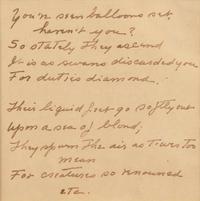 You've seen balloons set,
haven't you?
So stately they ascend
It is as swans discarded you
For duties diamond.
Their liquid feet go softly out
upon a sea of blond;
They spurn the air as 'twere too
mean
For creatures so renowned
etc.